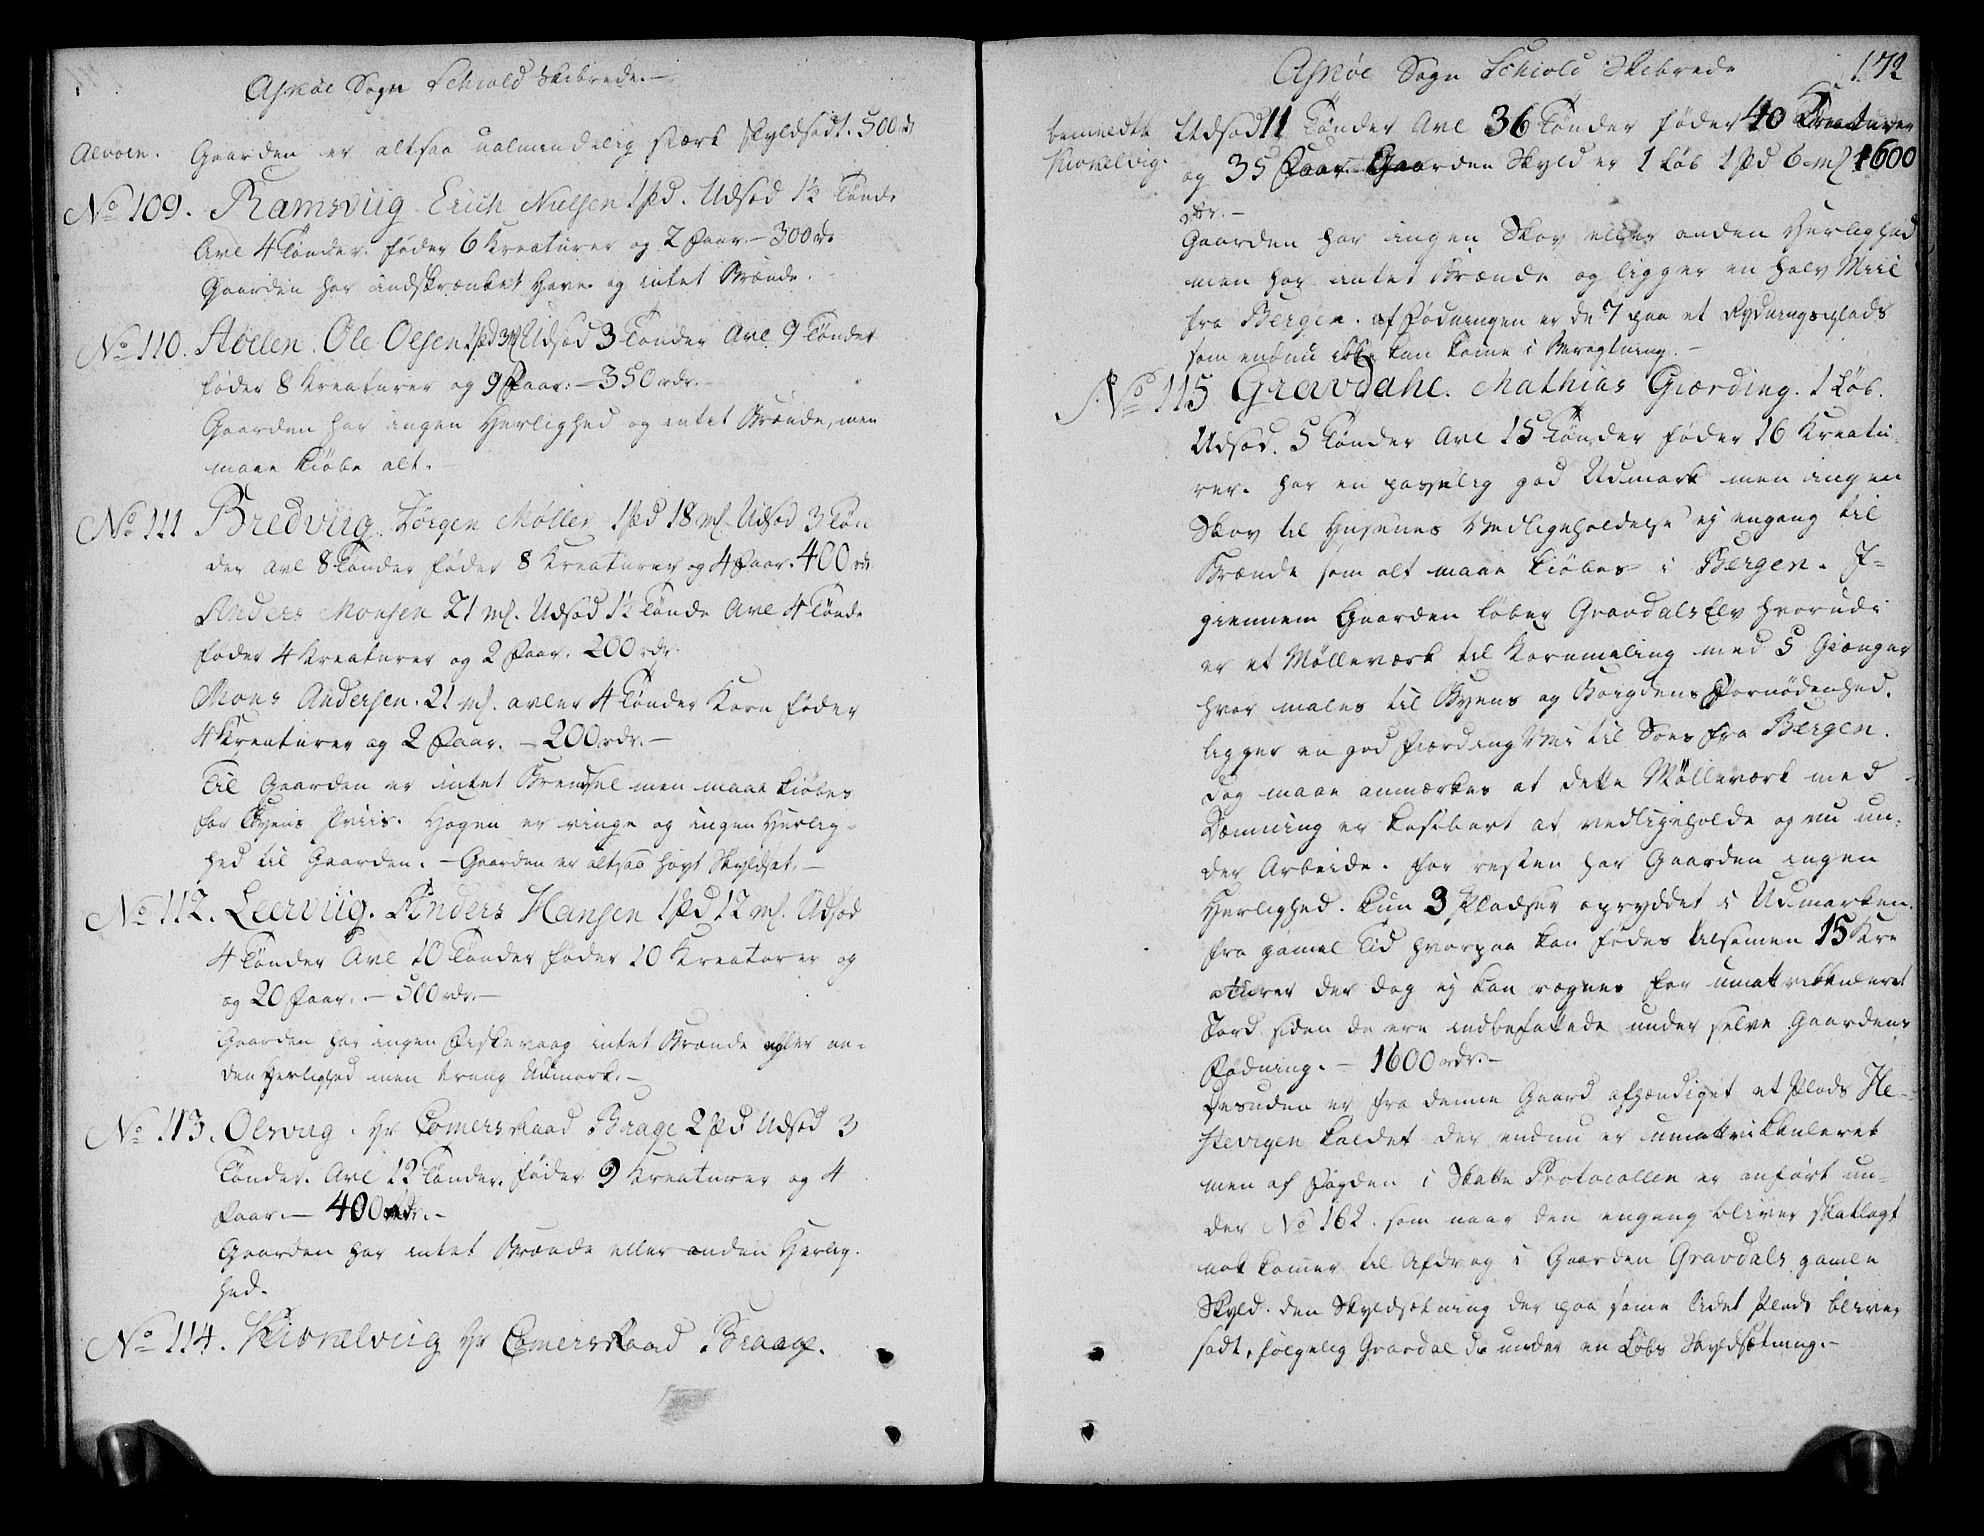 Askøe Sogn Schiold Skibrede.-
Alvøen. Gaarden er altsaa ualmindelig stærk Skyldsadt. 500 rdr
No 109. Ramsviig Erich Nielsen 1 pd. Udsæd 1½ Tønde
Avl 4 Tønder. føder 6 Kreaturer og 2 Faar - 300 rdr
Gaarden har indskrænket Have og intet Brænde.
No 110. Støelen. Ole Olsen 1 pd 3 mk Udsæd 3 Tønder Avl 9 Tønder
føder 8 Kreaturer og 9 Faar. - 350 rdr.
Gaarden har ingen Herlighed og intet Brænde, men
maae kiøbe alt. -
No 111 Bredviig. Jørgen Møller 1 pd 18 mk. Udsæd 3 Tøn
der Avl 8 Tønder føder 8 Kreaturer og 4 Faar. 400 rdr
Anders Monsen 21 mk. Udsæd 1½ Tønde Avl 4 Tønde
føder 4 Kreaturer og 2 Faar. 200 rdr.
Mons Andersen. 21 mk. avler 4 Tønder Korn føder
4 Kreaturer og 2 Faar. - 200 rdr. -
Til Gaarden er intet Brendsel men maae kiøbes
for Byens Priis. Hagen er ringe og ingen Herlig-
hed til Gaarden. - Gaarden er altsaa høyt Skyldsat. -
No 112. Leerviig. Anders Hansen 1 pd 12 mk. Udsæd
4 Tønder Avl 10 Tønder føder 10 Kreaturer og
og 20 Faar. - 500 rdr. -
Gaarden har ingen Fiskevaag intet Brænde eller an-
den Herlighed men trang Udmark. -
No 113. Olsvug. Hr Comersraad Brage 2 pd Udsæd 3
Tønder. Avl 12 Tønder. føder 9 Kreaturer og 4
Faar. - 400 rdr. -
Gaarden har intet Brænde eller anden Herlig-
hed.
No 114. Skionelviig Hr Comersraad Braage.
Askøe Sogn Schiold Skibrede 172
bemeldte Udsæd 11 Tønder Avl 36 Tønder føder 40 Kreaturer
Skionelvig. og 35 Faar. Gaarden Skyld er 1 Løb 1 pd 6 mk 1600
rdr. -
Gaarden har ingen Skov eller anden Herlighed
men har intet Brænde og ligger en halv Miil
fra Bergen. af Fødningen er de 7 paa et Rydningsplads
som endnu ikke kan kome i Beregtning. -
No 115 Gravdahl. Mathias Giærding. 1 Løb.
Udsæd. 5 Tønder Avl 15 Tønder føder 16 Kreatu
rer. har en passelig god Udmark men ingen
Skov til Husenes Vedligeholdelse ej engang til
Brænde som alt maae kiøbes i Bergen. I-
giennem Gaarden løber Gravdals Elv hvorudi
er et Mølleværk til Kornmaling med 5 Giænger
hvor males til Byens og Boigdens Fornødenhed.
ligger en god Fierding Mii til Søes fra Bergen.
dog maae anmærkes at dette Mølleværk med
Dæmning er kostbart at vedligeholde og nu un-
der Arbeide. for resten har Gaarden ingen
Herlighed. kun 3 Pladser opryddet i Udmarken.
fra gamel Tid hvorpaa kan fødes tilsamen 15 Kre
aturer der dog ej kan regnes for umatrikkuleret
Jord siden de ere indbefattede under selve Gaardens
Fødning. - 1600 rdr. -
Desuden er fra denne Gaard afhændiget et Plads He-
stevigen kaldet der endnu er umattrikkuleret
men af Fogden i Skatte Protocollen er anført un-
der No 162. som naar den engang bliver skatlagt
nok komer til Afdrag i Gaarden Gravdals gamle
Skyld. den Skyldsetning der paa same lidet Plads bliver
sadt, følgelig Gravdal da under en Løbs Skyldsetning. -